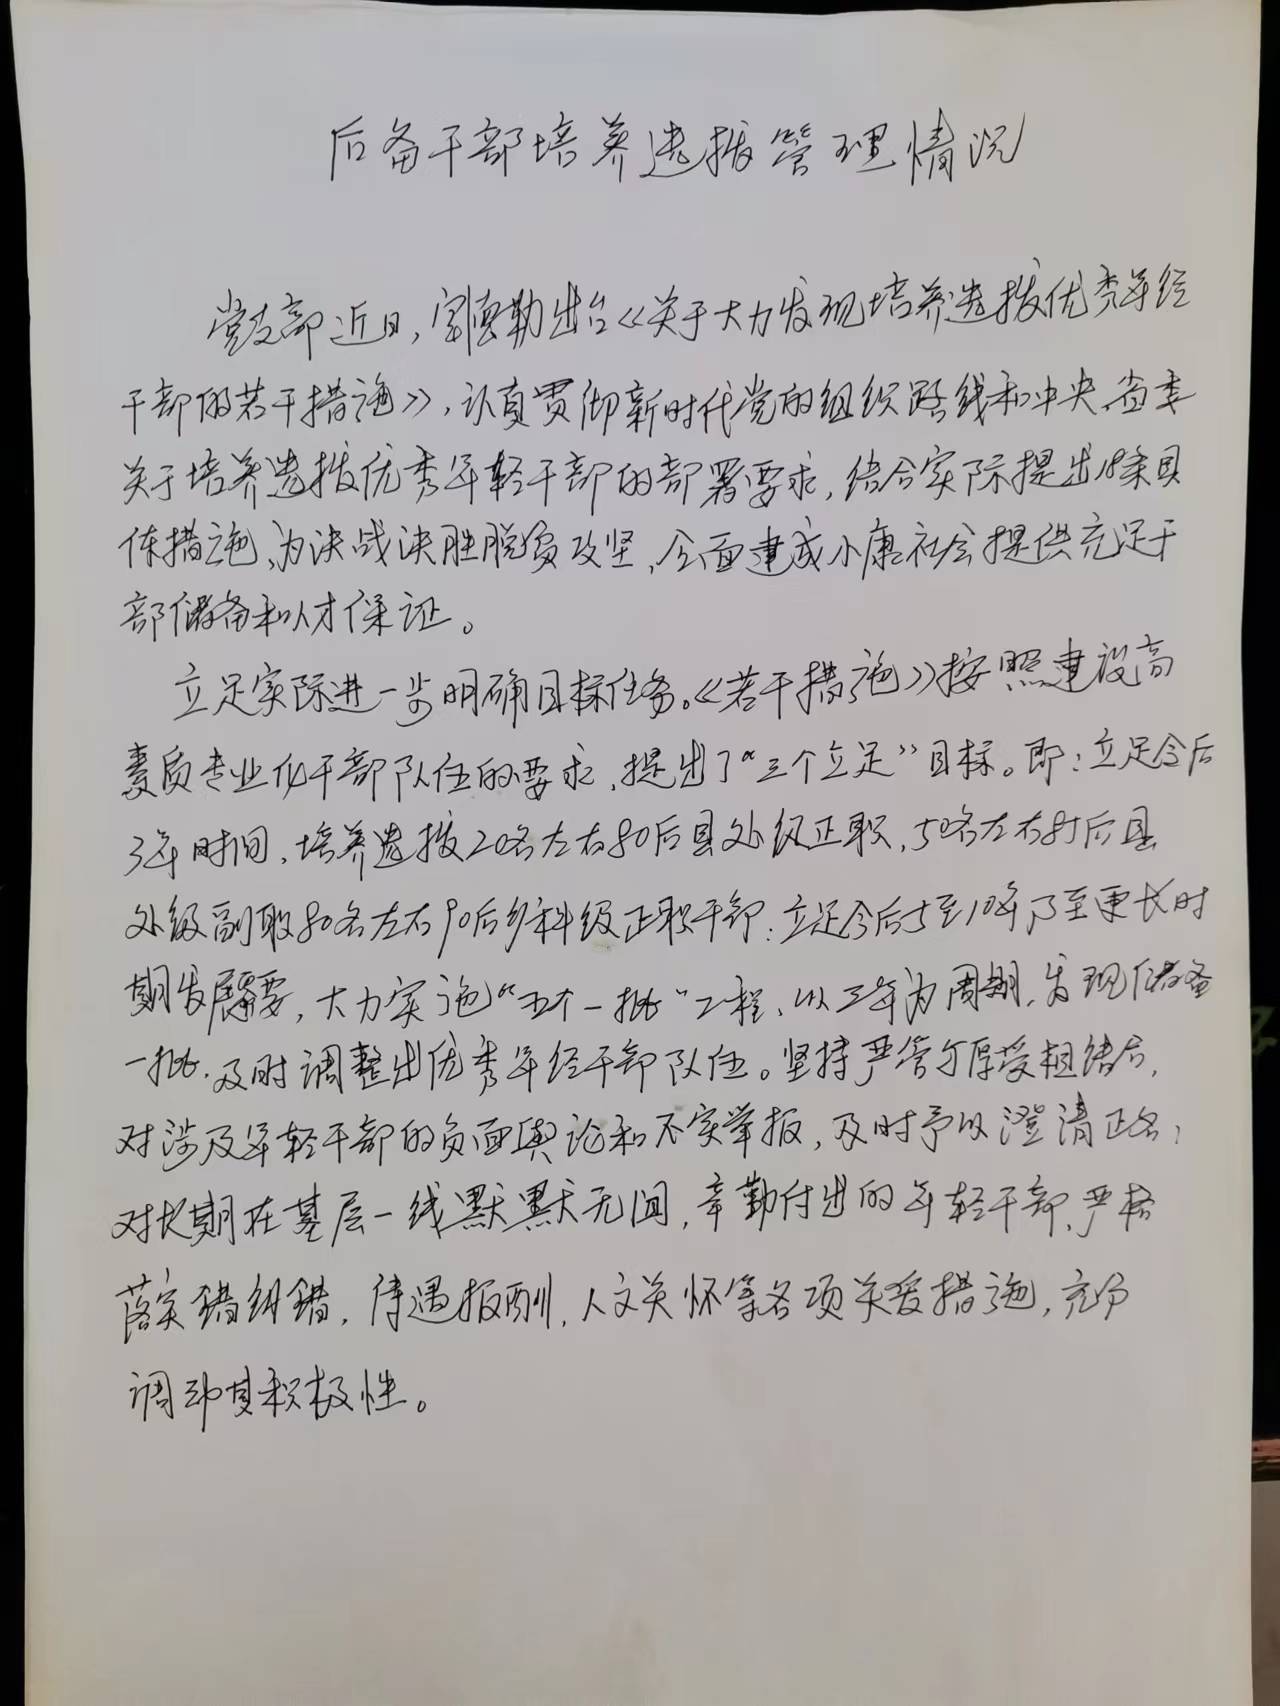 后备干部培养选拔管理情况
党支部近日，出台《关于大力发现培养选拔优秀年轻
干部的若干措施》，认真贯彻新时代党的组织路线和中央、省委
关于培养选拔优秀年轻干部的部署要求，结合实际提出18条具
体措施，为决战决胜脱贫攻坚，全面建成小康社会提供充足干
部储备和人才保证。
立足实际进一步明确目标任务。《若干措施》按照建设高
素质专业化干部队伍的要求，提出了“三个立足”目标。即：立足今后
3年时间，培养选拔20名左右80后县处级正职，50名左右85后县
处级副职80名左右90后乡科级正职干部；立足今后5至10年乃至更长时
期发展需要，大力实施“五个一批”工程，以三年为周期，发现储备
一批，及时调整出优秀年经干部队伍。坚持严管与厚爱相结合，
对涉及年轻干部的负面舆论和不实举报，及时予以澄清正名；
对长期在基层一线默默无闻，辛勤付出的年轻干部，严格
落实错纠错，待遇报酬，人文关怀等各项关爱措施，充分
调动其积极性。